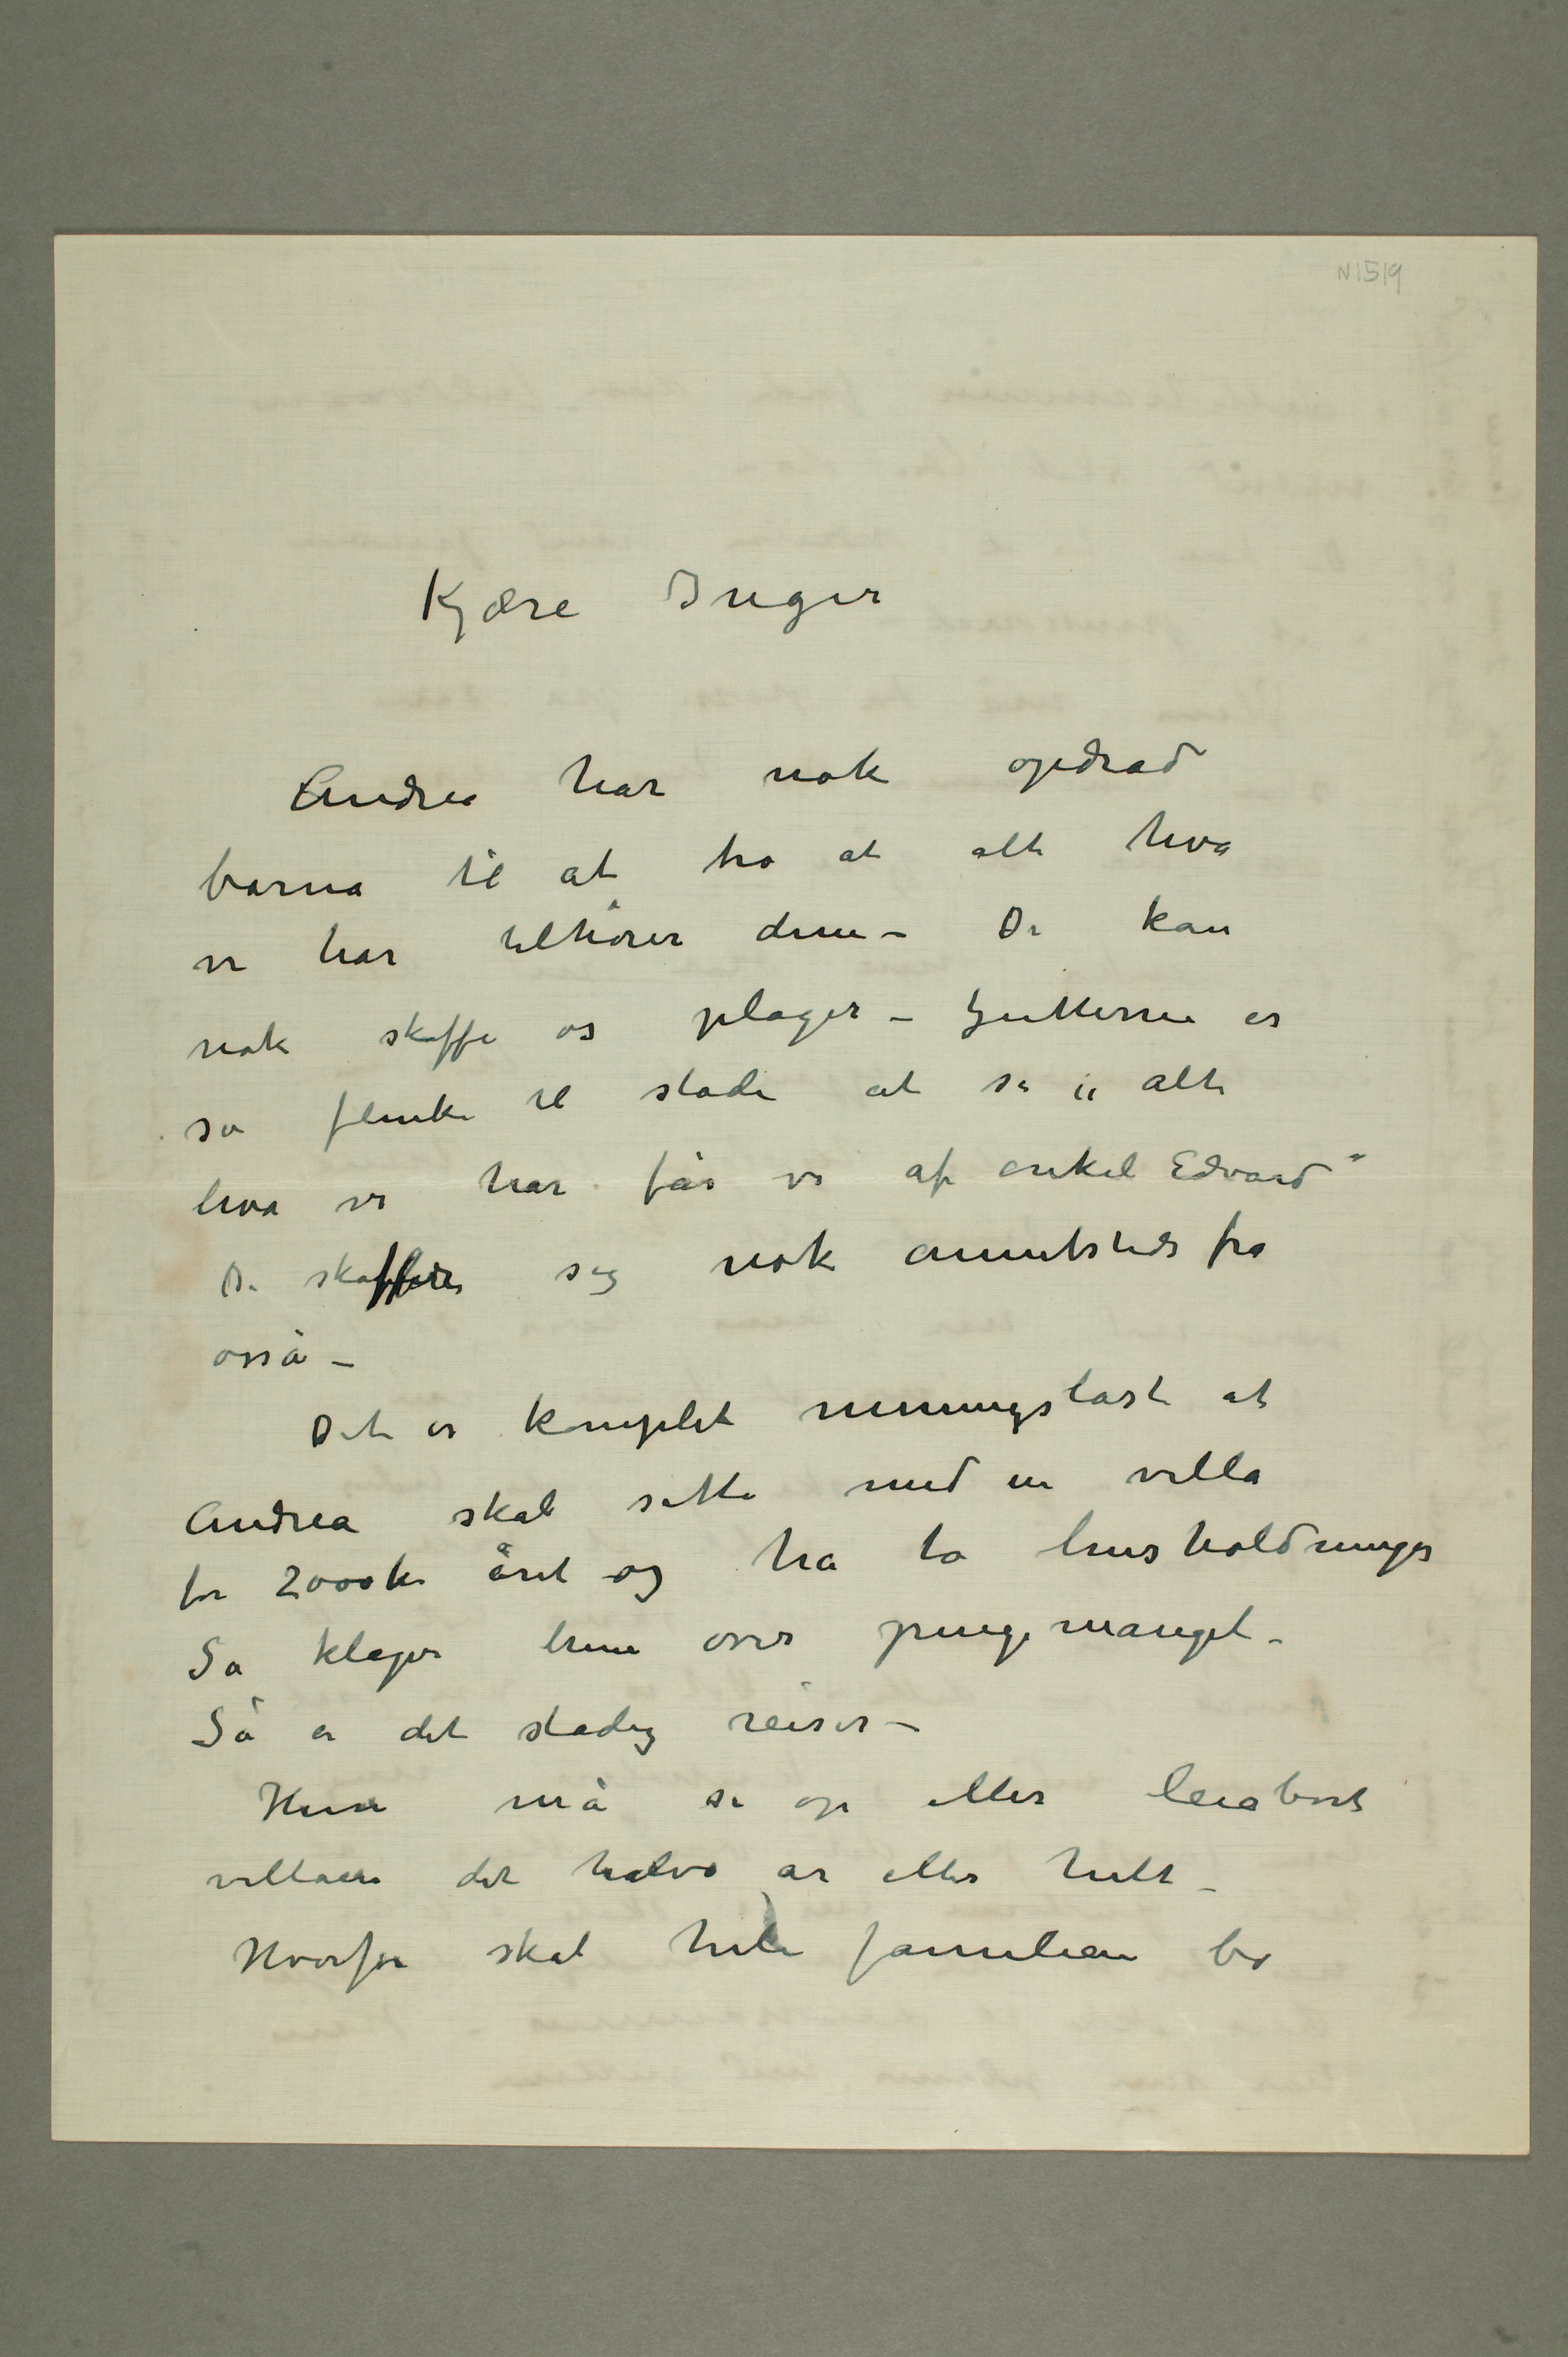 N1519
Kjære Inger
Andrea har nok opdrad
barna til at tro at alt hva
vi har tilhører dem – De kan
nok skaffe os plager – Gutterne er
så flinke til stadi at si „ alt
hva vi har får vi af onkel Edvard“
De skaffer sig nok annetsteds fra
osså –
Det er komplet meningsløst at
Andrea skal sitte med en villa
for 2000 kr året og ha to husholdninger
Så klager hun over pengemangel –
Så er det stadig reiser –
Hun må si op eller leie bort
villaen det halve år eller helt –
Hvorfor skal hele familien bo